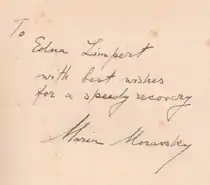 To
Edna Limpert
with best wishes
for a speedy recovery
Maria Moravsky